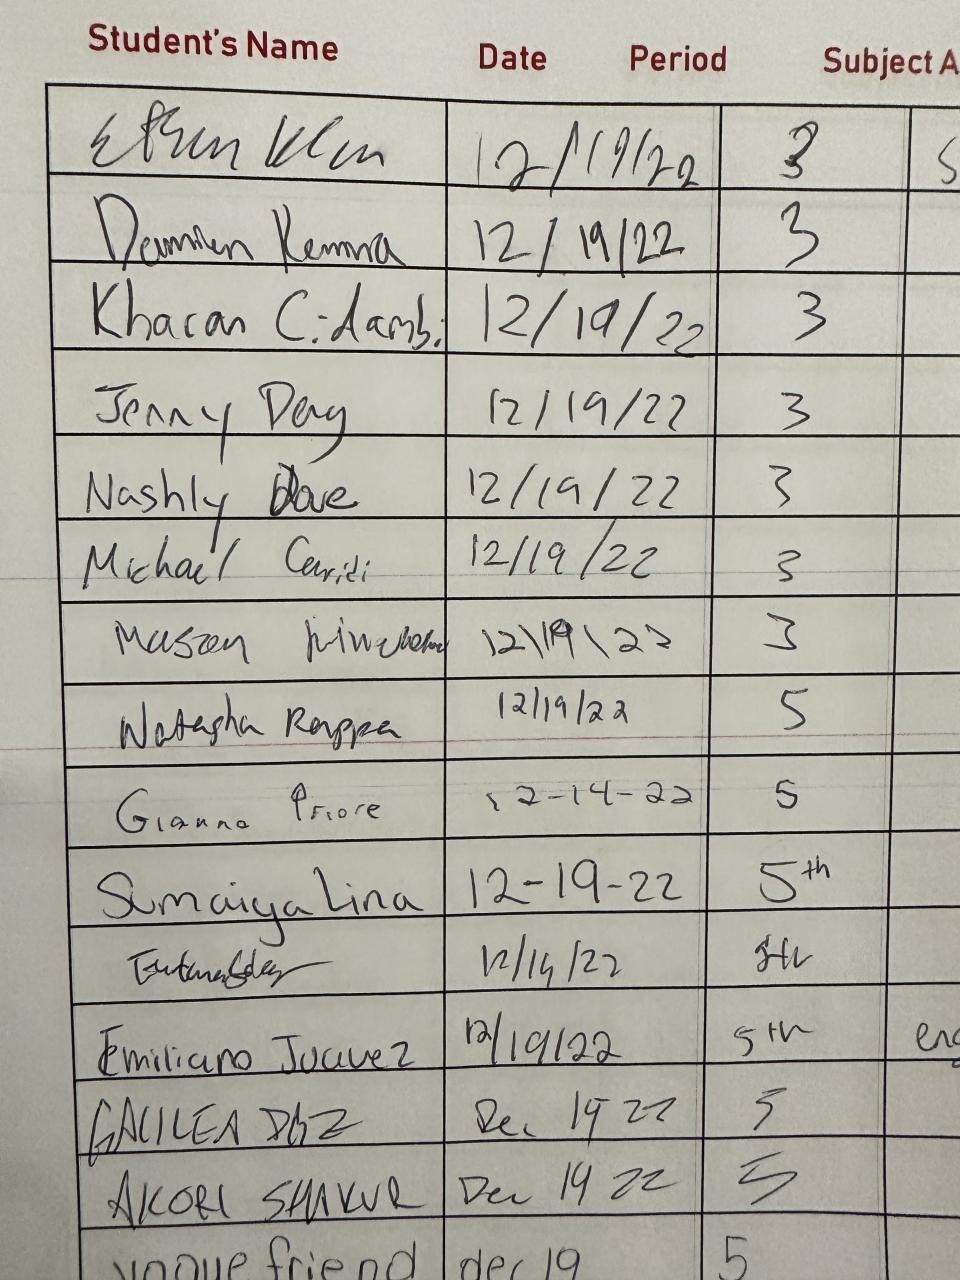 Student's Name Date Period Subject A
12/19/22 3 S
Damien Kemna 12/19/22 3
Kharan C. 12/19/22 3
Jenny Day 12/19/22 3
Nashly Dave 12/19/22 3
Michael 12/19/22 3
Mason 12\19\22 3
Natasha Rappa 12/19/22 5
Gianna Priore 12-19-22 5
Sumaiya Lina 12-19-22 5th
12/19/22 5th
Emiliano Juarez 12/19/22 5th eng
GALILEA DIAZ Dec 19 22 5
AKORI SHAKUR Dec 19 22 5
friend dec 19 5